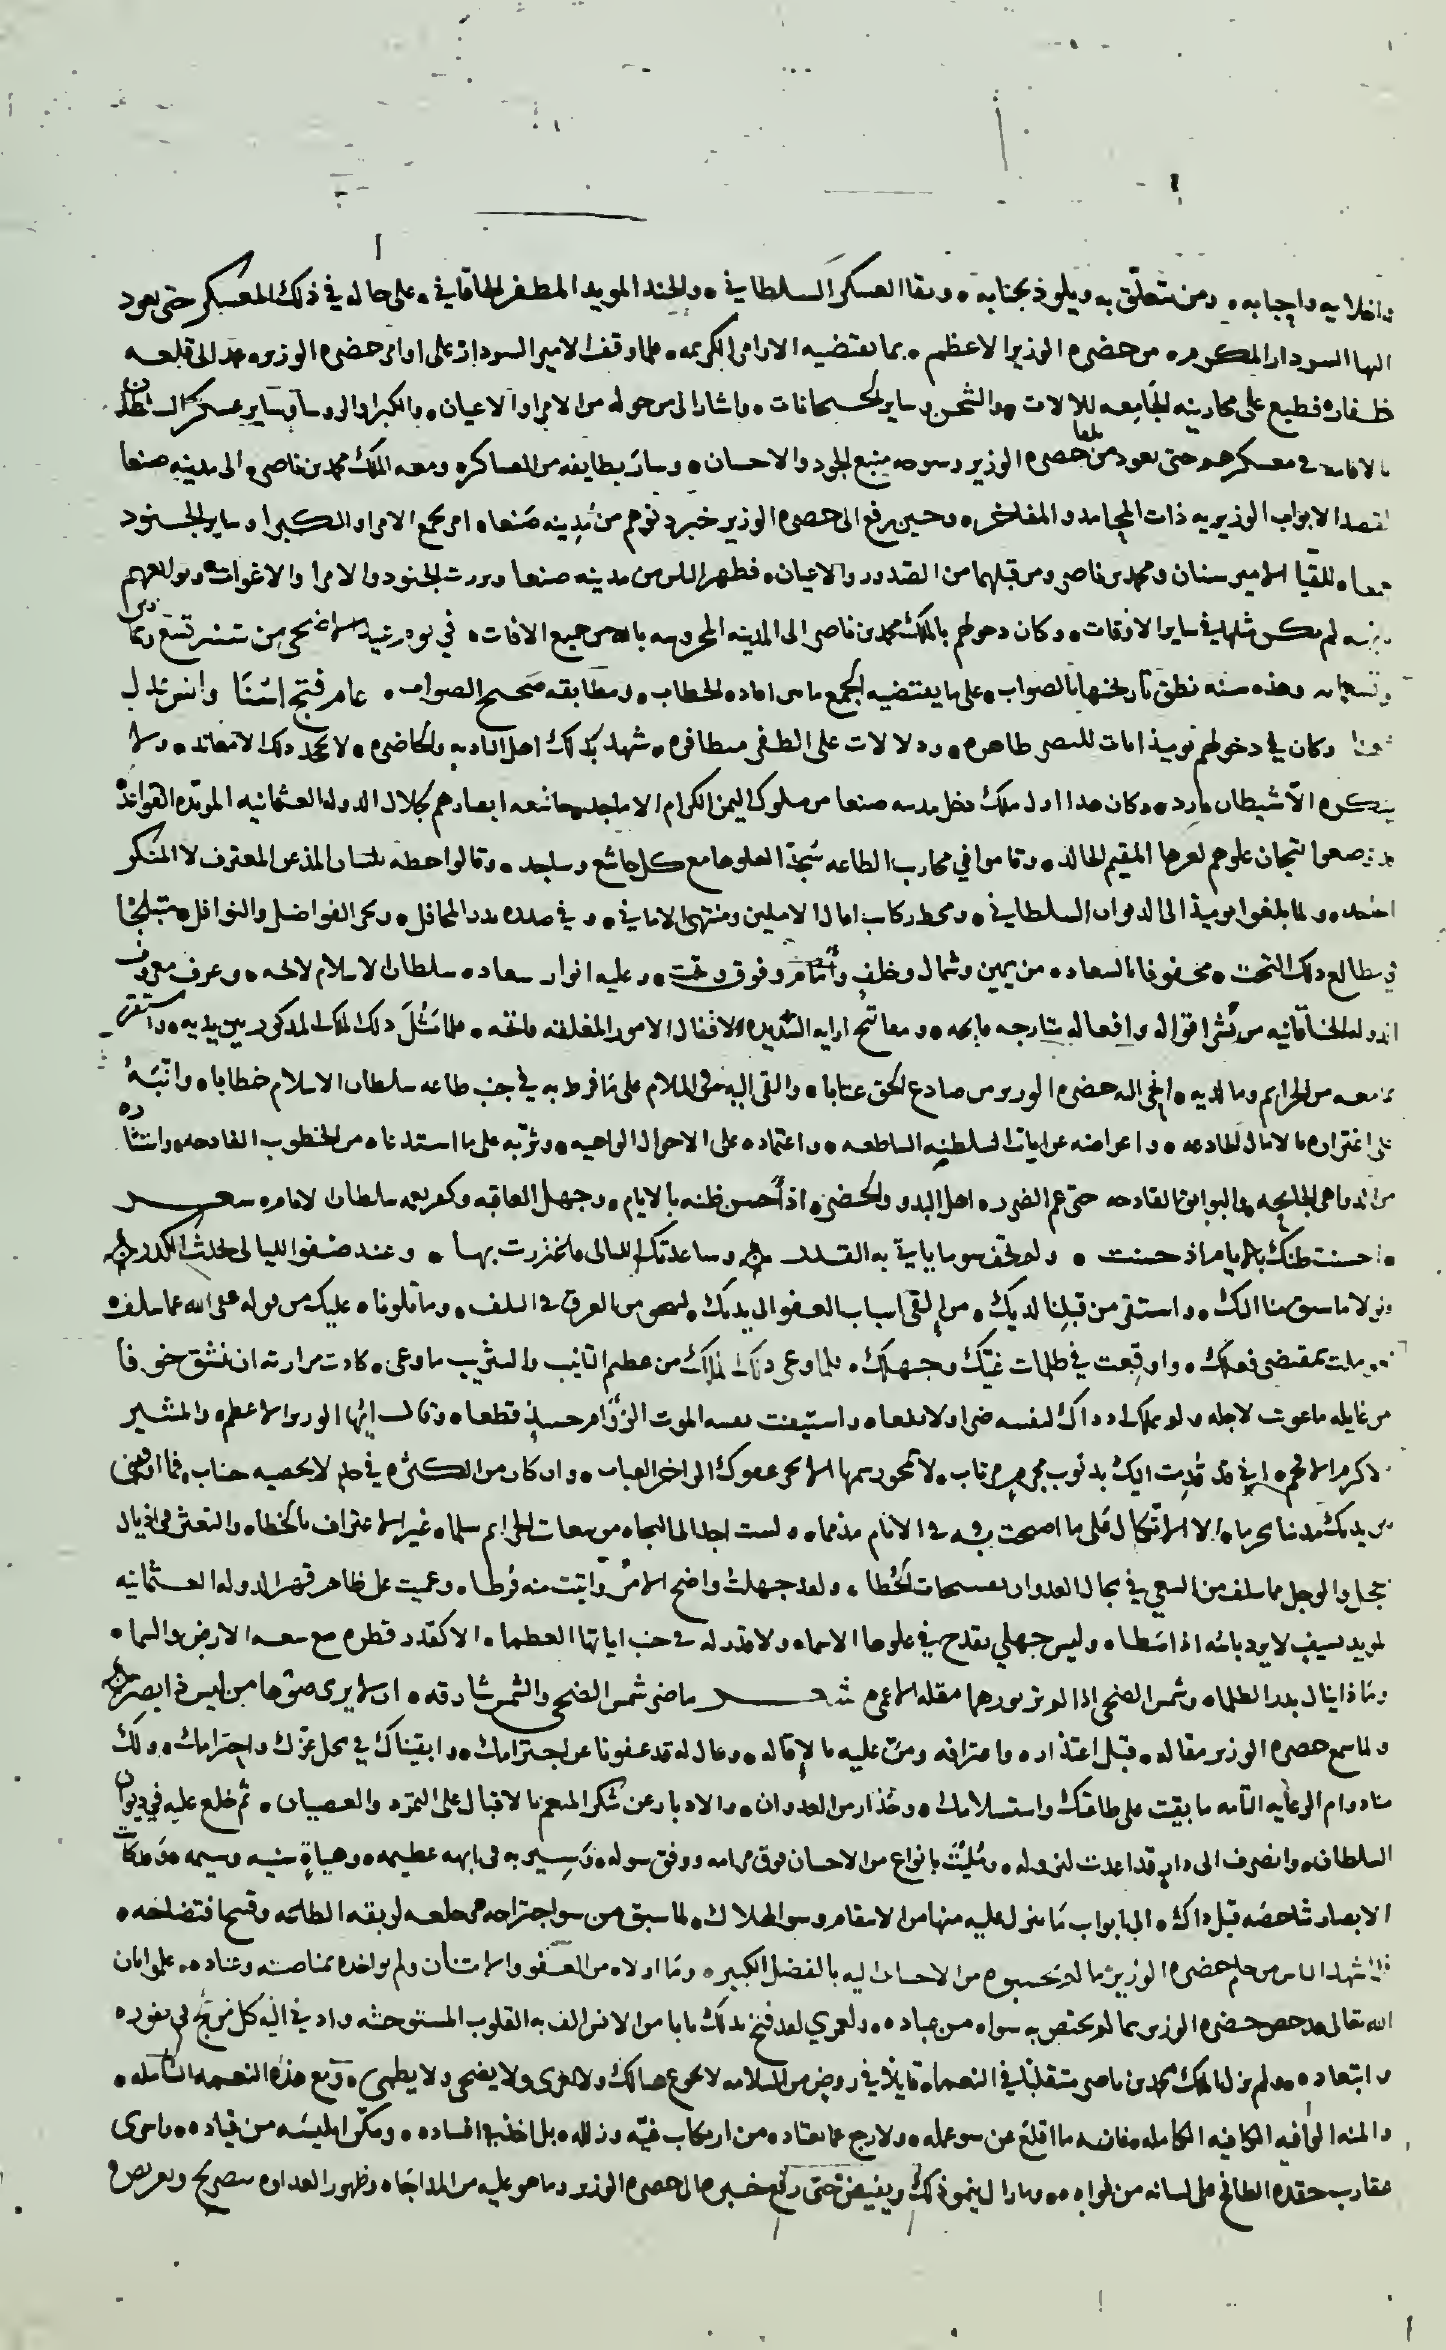 واخلايه واجبابه ومن تتعلّق به ويلوذ بجنابه وبقا العسكر السلطاني والجند المويد المظفر الخاقاني على حاله في ذلك المعسكر حتى يعود
اليها السردار المكرم من حضره الوزير الاعظم بما تقتضيه الاوامر الكريمه فلما وقف الامير السردار على اوامر حضره الوزير عمد الى قلعه
ظفار فطبع على مخازينه الجامعه للالات والشحن وساير الجبخانات واشار الى من حوله من الامرا والاعيان والكبرا والروسا وساير عسكر السلطان
بالاقامه في معسكرهم حتى يعود من تلقا حضره الوزير وسوحه منبع الجود والاحسان وسار بطايفه من العساكر ومعه الملك محمد بن ناصر الى مدينه صنعا
لقصد الابواب الوزيريه ذات المحامد والمفاخر وحين رفع الى حضره الوزير خبر دنوهم من مدينه صنعا امر بجمع الامرا والكبرا وساير الجنود
جمعا للقيا الامير سنان ومحمد بن ناصر ومن قبلهما من الصدور والاعيان فظهر الناس من مدينه صنعا وبرزت الجنود والامرا والاغوات
لم يكن مثلها في ساير الاوقات وكان دخولهم بالملك محمد بن ناصر الى المدينه المحروسه بالله من جميع الافات في يوم
وتسعمايه وهذه سنه نطق تاريخها بالصواب على ما يقتضيه الجمع ما من اماده الخطاب ومطابقه صحيح الصواب عام فتح اتنا
وكان في دخولهم يوميذ ايات للنصر ظاهره ودلالات على الظفر متظافره شهد بذلك اهل الباديه والحاضره لا يجحد ذلك الا معاند ولا
ينكره الا شيطان مارد وكان هذا اول ملك دخل مدينه صنعا من ملوك اليمن الكرام الاماجد خاشعه ابصارهم لجلال الدوله العثمانيه المويده القواعد
قد وضعوا تيجان علوهم لعزها المقيم الخالد وقاموا في محارب الطاعه سُجدًا لعلوها مع كل خاشع وساجد وقالوا حطه بلسان المذعن المعترف لا المنكر
الجاحد ولما بلغوا يوميذ الى الديوان السلطاني ومحط ركاب امال الاملين ومنتهى الاماني وفي صدره بدر المحافل وبحر الفواضل والنوافل متبلجًا
في مطالع ذلك التخت محفوفا بالسعاده من يمين وشمال وخلف وامام وفوق وتحت وعليه انوار سعاده سلطان الاسلام لائحه وعرف معروف
الدوله الخاقانيه من نشر اقواله وافعاله بتارجه فايحه ومفاتيح ارايه السديده لاقفال الامور المغلقه فاتحه فلما مَثُل ذلك الملك المذكور بين يديه واستقر
بما معه من الجرايم وما لديه انحى اليه حضره الوزير من صادع الحق عتابا والقى اليه في الملام على ما فرط به في جنب طاعه سلطان الاسلام خطابا وانّبَهُ
على اغتراره بالامال الخادعه واعراضه عن ايات السلطنه الساطعه واعتماده على الاحوال الواهيه وثرّبه على ما استدعاه من الخطوب الفادحه واستثاره
من الدواهي الجايحه والبوايق القادحه حتى عم الضرر اهل البدو والحضر اذ احسن ظنه بالايام وجهل العاقبه وكفر نعمه سلطان الانام شعر
احسنت ظنك بالايام اذ حسنت ولم تخف سو ما ياتي به القدر وساعدتك الليالي فاغتررت بها وعند صفو الليالي يحدث الكدر
ولولا ما سبق منا اليك واستقر من قبلنا لديك من القى اسباب العفو الى يديك لتنجو من الغرق في التلف وما تلوناه عليك من قوله عفى الله عما سلف
عوملت بمقتضى فعلك واوقعت في ظلمات غيّك وجهلك فلما وعى ذلك الملك من عظيم التانيب والتثريب ما وعى كادت مرارته ان تنشق خوفا
من غايله ما عوتب لاجله ولم يملك اذ ذاك لنفسه ضرا ولا نفعا واستيقنت نفسه الموت الزؤام حينيذ قطعا وقال ايها الوزير الاعظم والمشير
الاكرم الافخم اني قد قدمت اليك بذنوب مجرم مرتاب لا تمحو رسمها الا بحر عفوك الزاخر العباب وان كان من الكثره في حلم لا يحصيه حساب فما اوقفني
بين يديك مذنبا مجرما الا الاتكال على ما اصبحت به في الانام مذمما ولست اجد الى النجاه من تبعات الجرايم سلما غير الاعتراف بالخطا والتعثر في اذيال
الخجل والوجل مما سلف من السعي في مجال العدوان بفسيحات الخُطا ولقد جهلت واضح الامر واتيت منه فُرطا وعميت عن ظاهر قهر الدوله العثمانيه
المويد بسيف لا يرد باسه اذا سَطا وليس جهلي بقدح في علوها الاسما ولا قدر له في جنب اياتها العظما الا كقدر قطره مع سعه الارض والسما
وماذا ينال بدر الظلما وشمس الضحى اذا لم تر نورهما مقله الاعمى شعر ما ضر شمس الضحى والشمس شارقه ان لا يرى ضوها من ليس ذا بصر
ولما سمع حضره الوزير مقاله قبل اعتذاره واعترافه ومنّ عليه بالاقاله وقال له قد عفونا عن اجترامك وابقيناك في محل عزّك واحترامك ولك
منا دوام الرعايه التامه ما بقيت على طاعتك واستسلامك وحذار من العدوان والادبار عن شكر المنعم بالاقبال على التمرد والعصيان ثم خلع عليه في ديوان
السلطان وانصرف الى دار قد اعدت لنزوله ومُليت بانواع من الاحسان فوق مرامه ووفق سوله وسير به في ابهه عظيمه وهياة سنيه وسيمه وقد كانت
الابصار شاخصه قبل ذاك الى ابواب ما ينزل عليه منها من الانتقام وسو الهلاك لما سبق من سو اجتراحه في خلعه لربقه الطاعه وقبح افتضاحه
فلما شهد الناس من حلم حضره الوزير ما لم يحسبوه من الاحسان اليه بالفضل الكبير وما اولاه من العفو والامتنان ولم يواخذه بمناصبته وعناده علموا بان
الله تعالى قد خص حضره الوزير بما لم يختص به سواه من عباده ولعمري لقد فتح بذلك بابا من الانس الف به القلوب المستوحشه وادنى اليه كل نزيح في نفوره
وابتعاده ولم يزل الملك محمد بن ناصر متقلبًا في النعما قايلًا في روض من السلامه لا يجوع هنالك ولا يعرى ولا يضحى ولا يظمى ومع هذه النعمه الشامله
والمنه الوافيه الكافيه الكامله فانه ما اقلع عن سو عمله ولا رجع عما يعتاده من ارتكاب غيّه وزلله بل اخذ في افساده ومكّن ابليسَه من قياده واجرى
عقارب حقده الطافح على لسانه من فواده وما زال ينمو ذلك ويفيض حتى رفع خبره الى حضره الوزير وما هو عليه من المداجاه وظهور العداوه بتصريح وتعريض